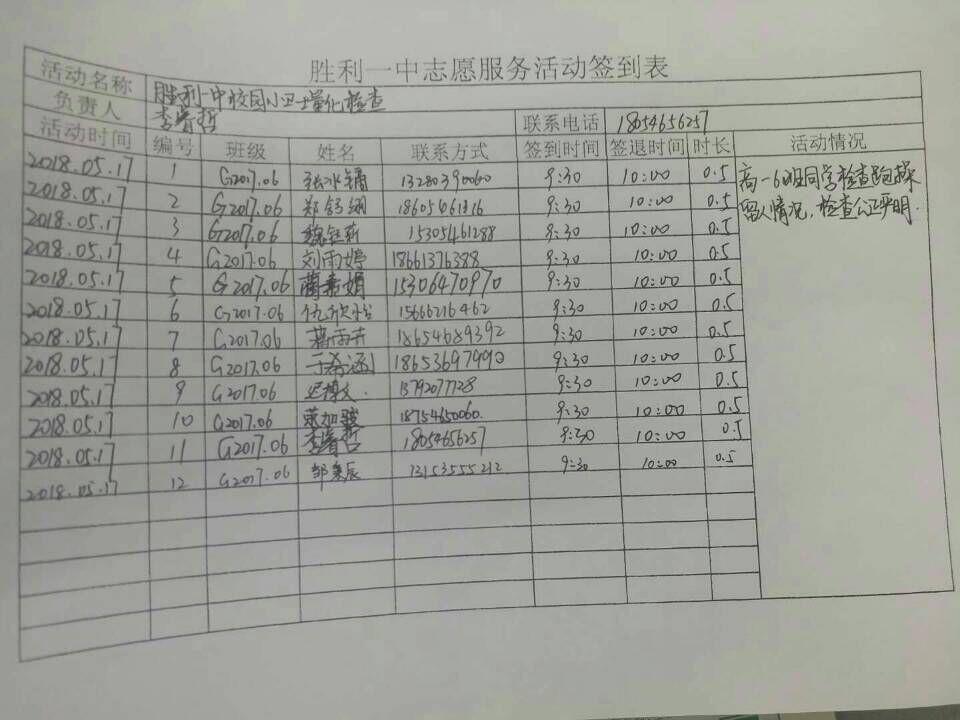 胜利一中志愿服务活动签到表
活动名称 胜利一中校园小卫士量化检查
负责人 李睿哲 联系电话 18054656257
活动时间 编号 班级 姓名 联系方式 签到时间 签退时间 时长 活动情况
2018.05.17 1 G2017.06 张冰 13280390060 9:30 10:00 0.5 高一6班同学检查跑操
2018.05.17 2 G2017.06 郑 18605461816 9:30 10:00 0.5 留人情况,检查公正严明.
2018.05.17 3 G2017.06 魏钰 15305461288 9:30 10:00 0.5
2018.05.17 4 G2017.06 刘雨婷 18661376388 9:30 10:00 0.5
2018.05.17 5 G2017.06 15306470970 9:30 10:00 0.5
2018.05.17 6 G2017.06 仇欣 15666216462 9:30 10:00 0.5
2018.05.17 7 G2017.06 18654689392 9:30 10:00 0.5
2018.05.17 8 G2017.06 于希涵 18653697990 9:30 10:00 0.5
2018.05.17 9 G2017.06 13792077728 9:30 10:00 0.5
2018.05.17 10 G2017.06 18754650060. 9:30 10:00 0.5
2018.05.17 11 G2017.06 李睿哲 18054656257 9:30 10:00 0.5
2018.05.17 12 G2017.06 邹 13153555212 9:30 10:00 0.5